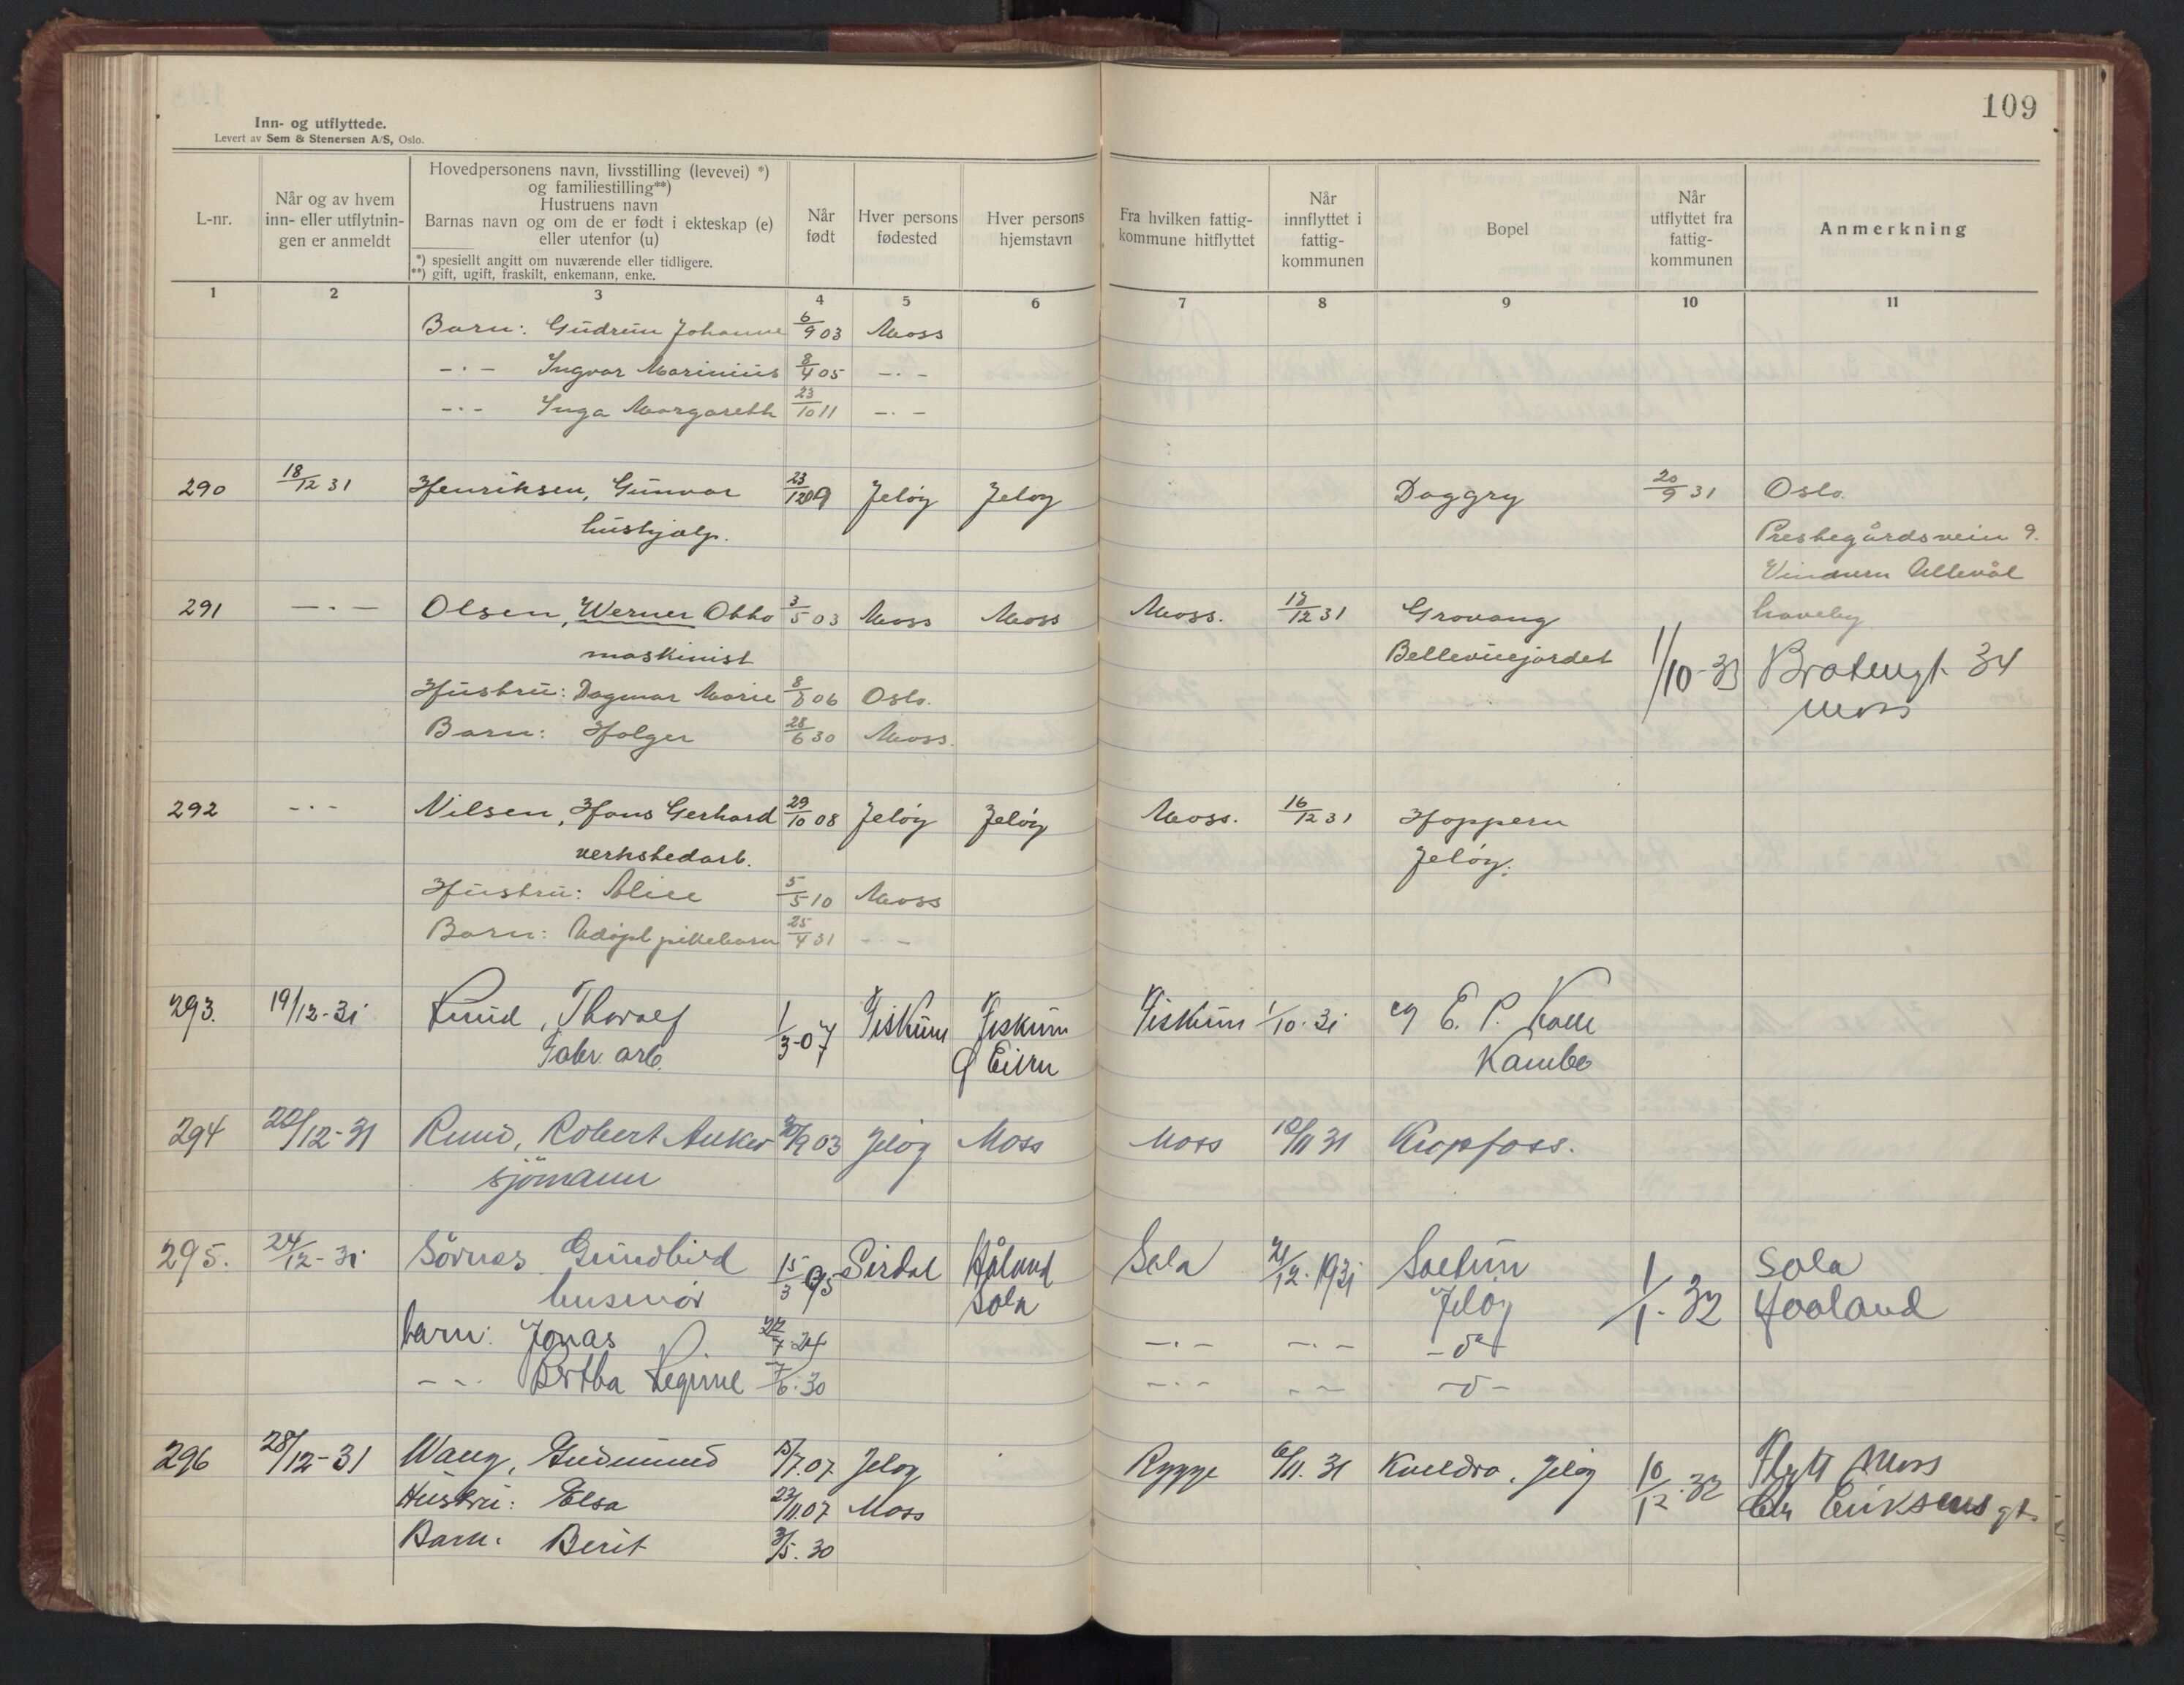 109
Inn- og utflyttede.
Levert av Sem & Stenersen A/S, Oslo.
L-nr.
Når og av hvem inn- eller utflytnin-gen er anmeldt
Hovedpersonens navn, livsstilling (levevei) *)
og familiestilling**)
Hustruens navn
Barnas navn og om de er født i ekteskap (e)
eller utenfor (u)
*) spesiellt angitt om nuværende eller tidligere.
**) gift, ugift, fraskilt, enkemann, enke.
Når født
Hver persons fødested
Hver persons hjemstavn
Fra hvilken fattig-kommune hitflyttet
Når innflyttet i fattig-kommunen
Bopel
Når utflyttet fra fattig-kommunen
Anmerkning
1 2 3 4 5 6 7 8 9 10 11
Barn: Gudrun Johanne 6/9 03 Moss
-"- Ingvar Marinius 8/4 05 -"-
-"- Inga Margareth 23/10 11 -"-
290 18/12 31 Henriksen, Gunvor 23/12 09 Jeløy Jeløy Daggry 20/9 31 Oslo.
hushjelp. Prestegårdsvein 9.
Vindern Ullevål
291 -"- Olsen, Werner Otto 3/5 03 Moss Moss Moss. 17/12 31 Grovang haveby
maskinist Bellevuejordet 1/10-33 Bratengt 34
Hustru: Dagmar Marie 8/8 06 Oslo. Moss
Barn: Holger 28/6 30 Moss.
292 -"- Nilsen, Hans Gerhard 29/10 08 Jeløy Jeløy Moss. 16/12 31 Hoppern
verkstedarb. Jeløy.
Hustru: Alice 5/5 10 Moss
Barn: Udøpt pikebarn 25/4 31 -"-
293. 19/12-31 Ruud, Thoralf 1/3-07 Fiskum Fiskum Fiskum 1/10-31 eg E. P. Kolle
Fabr arb. Ø Eiern Kambo
294 20/12-31 Ruud, Robert Anker 30/9 03 Jeløy Moss Moss 10/11 31 Kropfoss.
sjömann
295. 24/12-31 Sörnes Gundbird 15/3 95 Sirdal Håland Sola 21/12.1931 Soltun 1/1.32 Sola
husmor Sola Jeløy Haaland
barn: Jonas 7 24 -"- -"- -d-
-"- Bertha Regine 7/6.30 -"- -"- -d-
296 28/12-31 Wang, Gudmund 15/7.07 Jeløy Rygge 6/11.31 Kveldro, Jeløy 10/12.32 Flytt Moss
Hustru: Elsa 23/11.07 Moss Chr Eriksens gt.
Barn: Berit 3/5.30